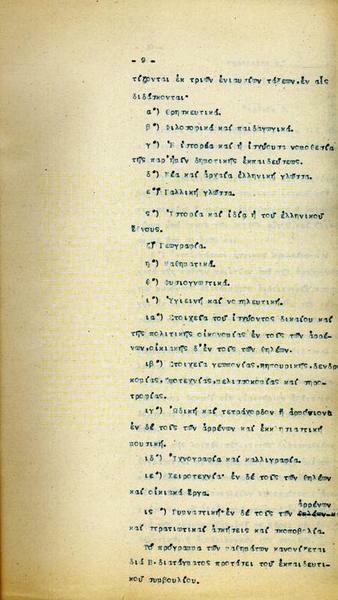 - 9 -
τίζονται ἐκ τριῶν ἐνιαυσίων τάξεων, ἐν αἷς
διδάσκονται·
α') Θρησκευτικά.
β') Φιλοσοφικά καί παιδαγωγικά.
γ') Ἡ ἱστορία καί ἡ ἰσχύουσα νομοθεσία
τῆς παρ' ἡμῖν δημοτικῆς ἐκπαιδεύσεως.
δ') Νέα καί ἀρχαία ἑλληνική γλῶσσα.
ε') Γαλλική γλῶσσα.
ς') Ἱστορία καί ἰδίᾳ ἡ τοῦ ἑλληνικοῦ
ἔθνους.
ζ') Γεωγραφία.
η') Μαθηματικά.
θ') Φυσιογνωστικά.
ι') Ὑγιεινή καί νοσηλευτική.
ια') Στοιχεῖα τοῦ ἰσχύοντος δικαίου καί
τῆς πολιτικῆς οἰκονομίας ἐν τοῖς τῶν ἀρρέ-
νων, οἰκιακῆς δ' ἐν τοῖς τῶν θηλέων.
ιβ') Στοιχεῖα γεωπονίας, κηπουρικῆς, δενδρο-
κομίας, ζωοτεχνίας, μελισσοκομίας καί σηρο-
τροφίας.
ιγ') ᾨδική καί τετράχορδον ἤ ἁρμόνιον
ἐν δέ τοῖς τῶν ἀρρένων καί ἐκκλησιαστική
μουσική.
ιδ') Ἰχνογραφία καί καλλιγραφία.
ιε') Χειροτεχνία· ἐν δέ τοῖς τῶν θηλέων
καί οἰκιακά ἔργα.
ἀρρένων
ις') Γυμναστική· ἐν δέ τοῖς τῶν θηλέων
καί στρατιωτικαί ἀσκήσεις καί σκοποβολία.
Τό πρόγραμμα τῶν μαθημάτων κανονίζεται
διά Β. διατάγματος προτάσει τοῦ ἐκπαιδευτι-
κοῦ συμβουλίου.